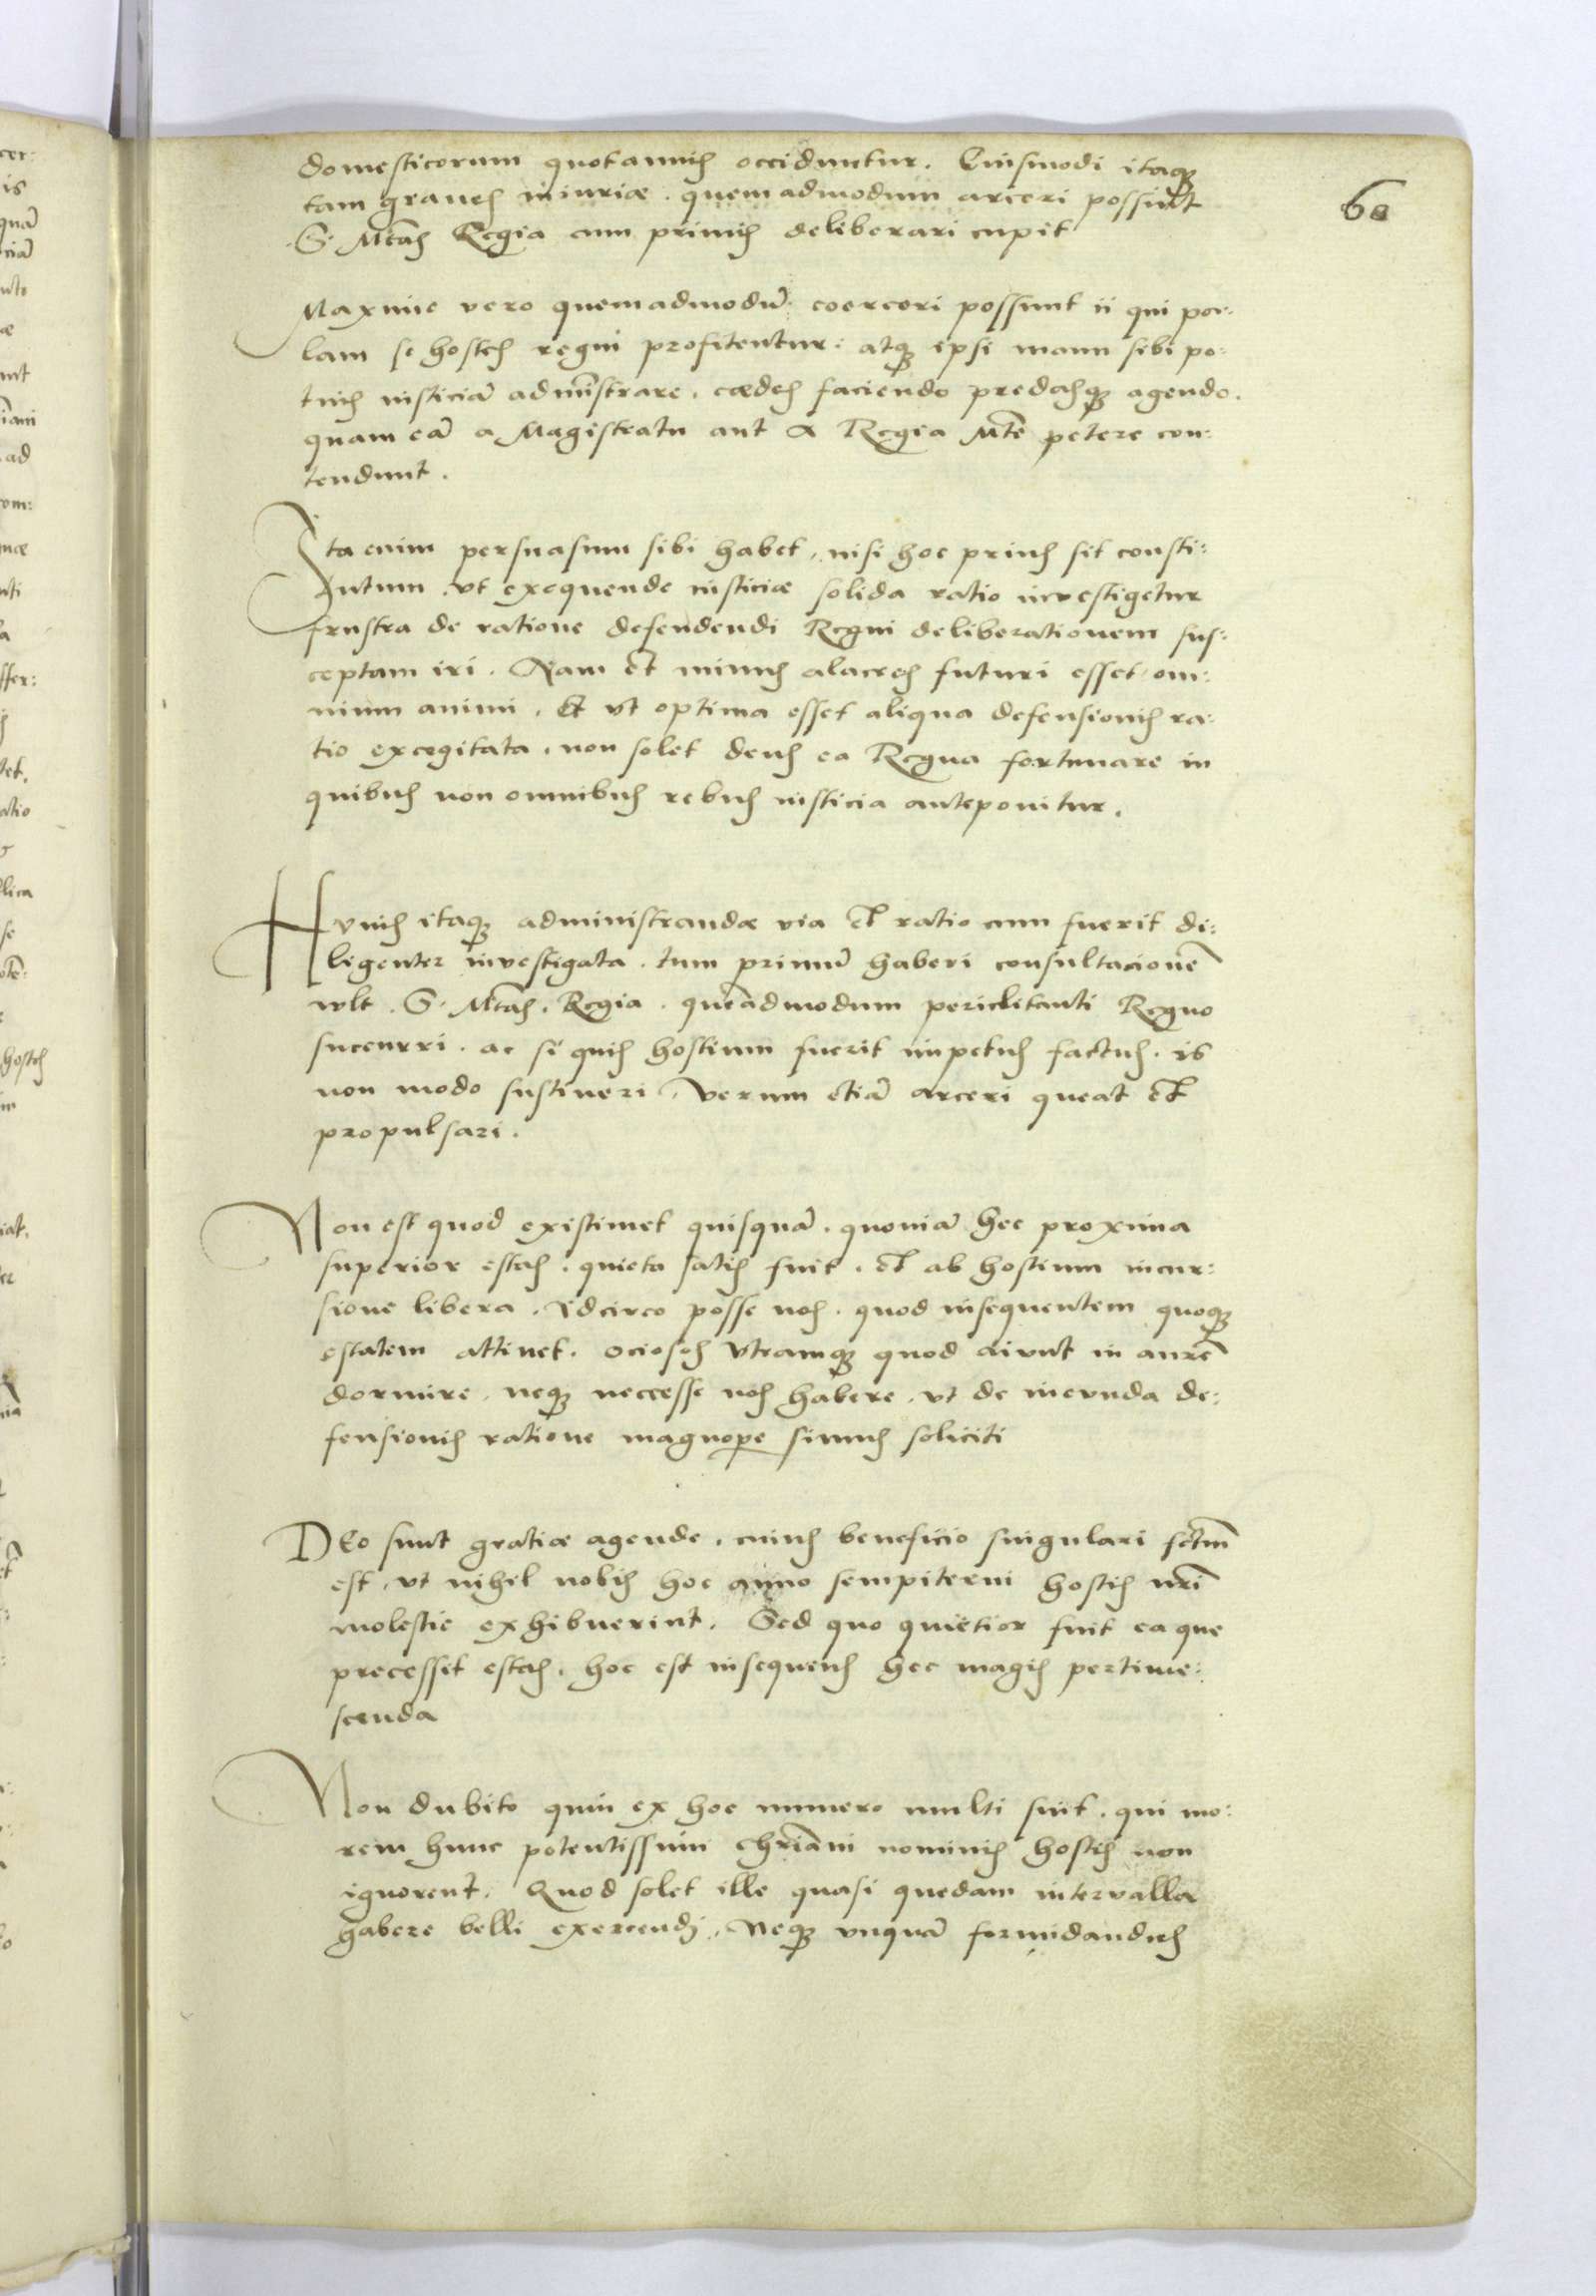 60
domesticorum quotannis occiduntur. Eiusmodi itaq[ue]
tam graues iniuriæ. quemadmodum arceri possint
S. Mtas Regia cum primis deliberari cupit
Maxime vero quemadmodū coerceri possunt ii qui pa:
lam se hostes regni profitentur: atq[ue] ipsi manu sibi po:
tius iusticiā administrare. cædes faciendo predasq[ue] agendo.
quam eā a Magistratu aut a Regia Mte petere con:
tendunt.
Ita enim persuasum sibi habet, nisi hoc prius sit consti:
tutum. vt exequende iusticiæ solida ratio investigetur
frustra de ratione defendendi Regni deliberationem sus:
ceptam iri. Nam et minus alacres futuri esset om:
nium animi. Et vt optima esset aliqua defensionis ra:
tio excogitata, non solet deus ea Regna fortunare in
quibus non omnibus rebus iusticia anteponitur.
Huius itaq[ue] administrandæ via et ratio cum fuerit di:
ligenter investigata. tum primū haberi consultacionē
wlt. S. Mtas. Regia. quēadmodum periclitanti Regno
sucurri. ac si quis hostium fuerit impetus factus. is
non modo sustineri, verum etiā arceri queat et
propulsari.
Non est quod existimet quisquā. quoniā hec proxima
superior estas. quieta satis fuit. et ab hostium incur:
sione libera. Idcirco posse nos. quod insequentem quoq[ue]
estatem attinet. ociosos vtramq[ue] quod aiunt in aurē
dormire. neq[ue] neccesse nos habere. vt de ineunda de:
fensionis ratione magnope simus soliciti
DEo sunt gratiæ agende. cuius beneficio singulari fctm̄
est, vt nihil nobis hoc anno sempiterni hostes nr̄i
molestie exhibuerint. Sed quo quietior fuit ea que
precesset estas. hoc est insequens hec magis pertime:
scenda
Non dubito quin ex hoc numero multi sint. qui mo:
rem hunc potentissimi chriani nominis hostis non
ignorent. Quod solet ille quasi quedam intervalla
habere belli exercendi, Neq[ue] vnquā formidandus